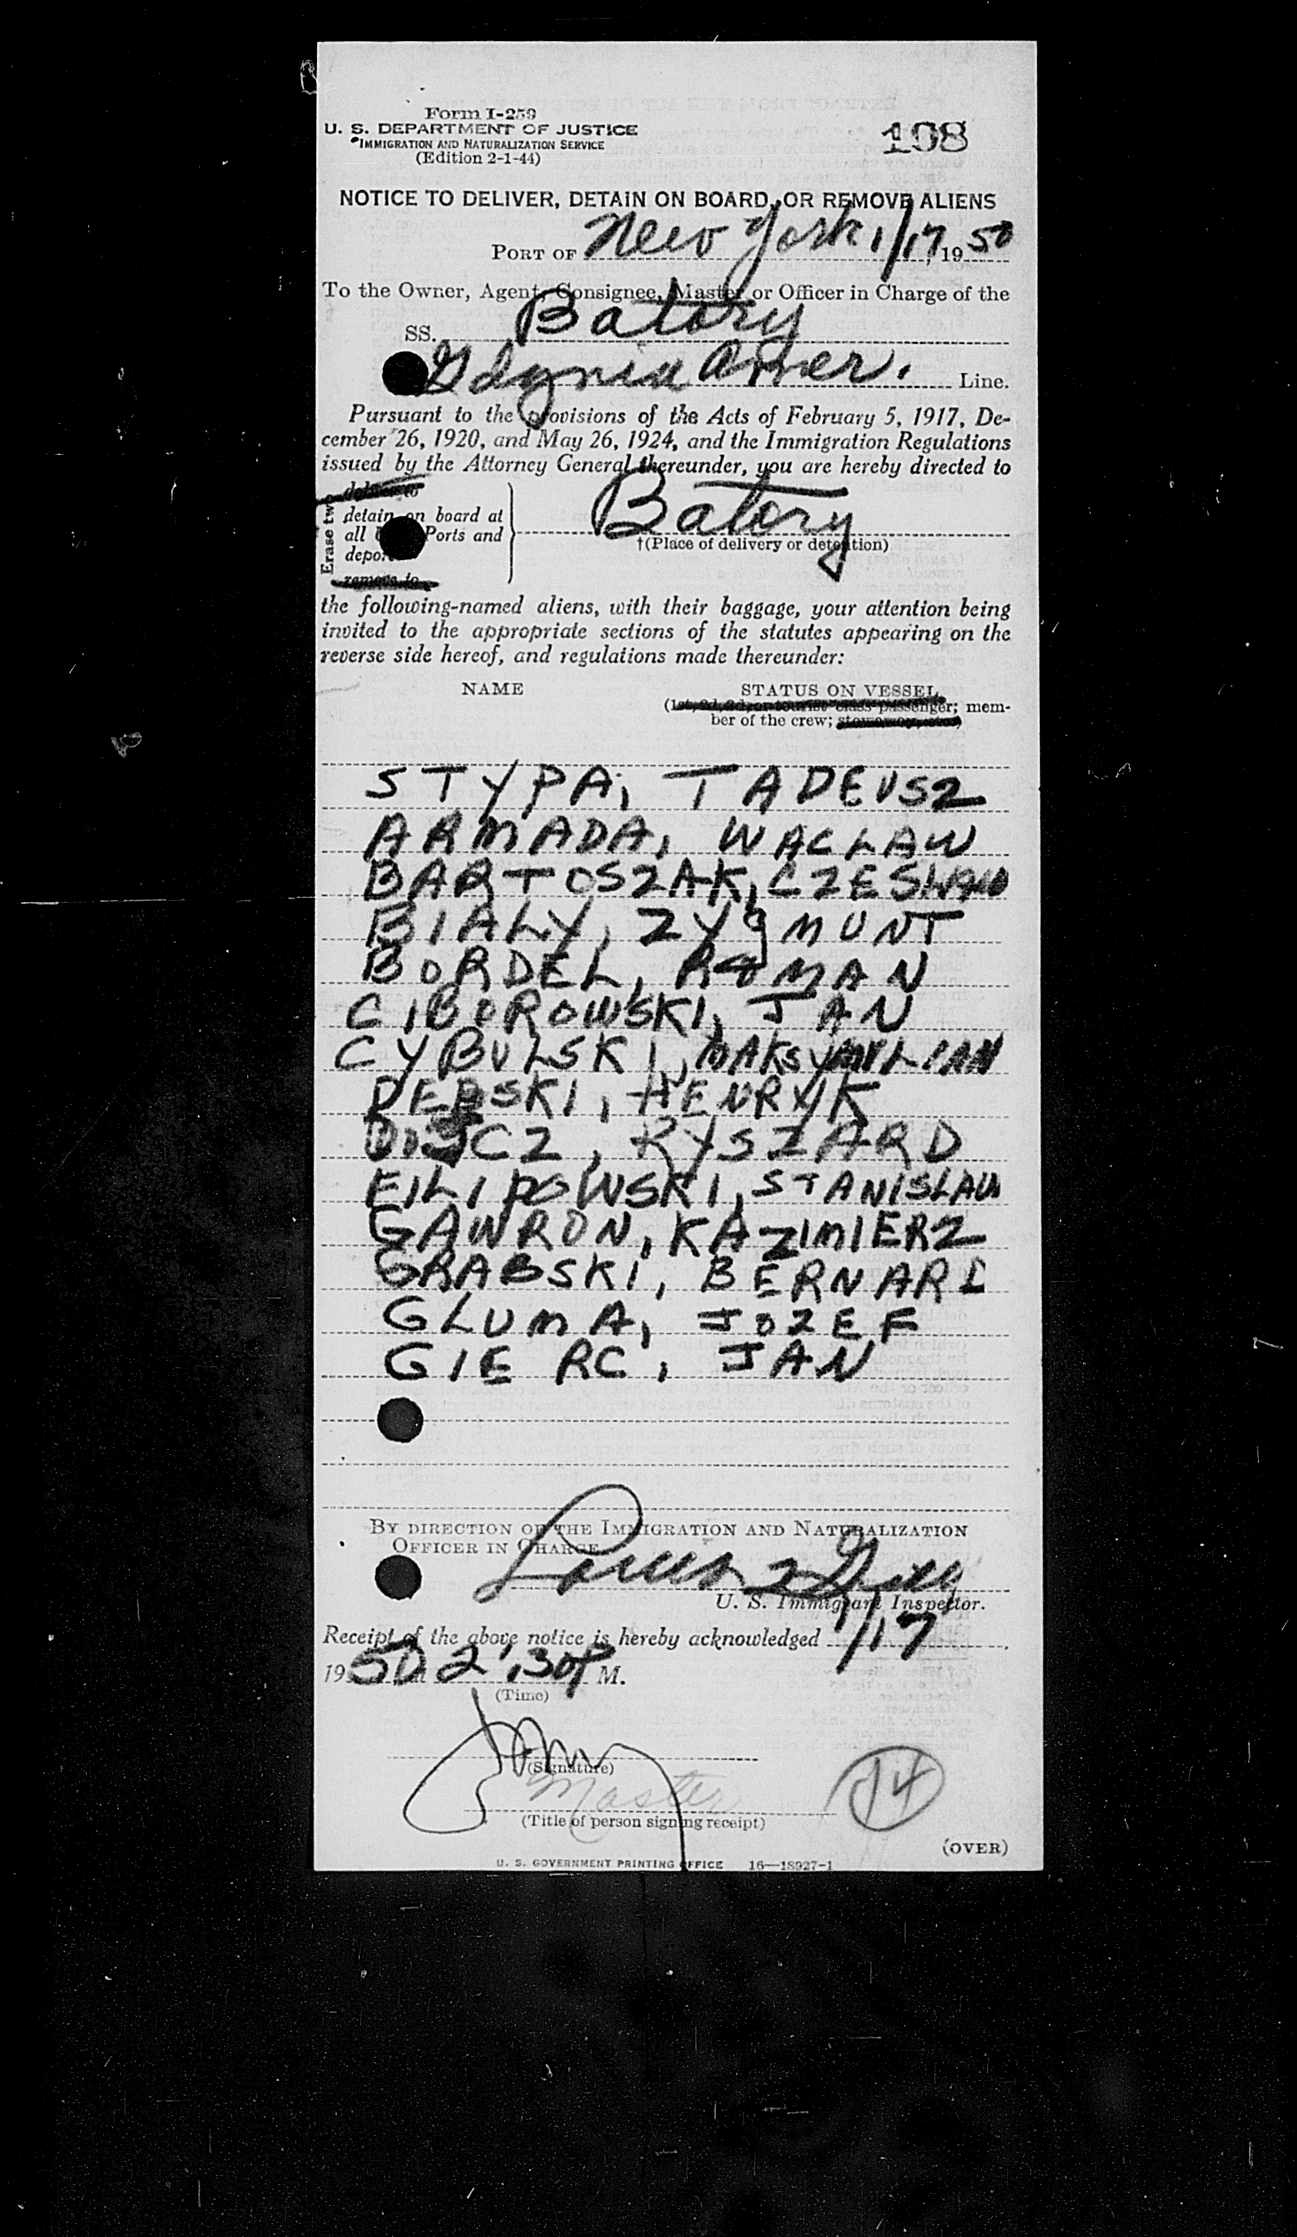 Form I-259
U. S. DEPARTMENT OF JUSTICE
IMMIGRATION AND NATURALIZATION SERVICE
(Edition 2-1-44)
198
NOTICE TO DELIVER, DETAIN ON BOARD, OR REMOVE ALIENS
PORT OF New York 1/17, 1950
To the Owner, Agent, Consignee, Master or Officer in Charge of the
SS. Batory
Gdynia Amer. Line.
Pursuant to the provisions of the Acts of February 5, 1917, De-
cember 26, 1920, and May 26, 1924, and the Immigration Regulations
issued by the Attorney General thereunder, you are hereby directed to
Erase two
deliver to
detain on board at
all Ports and
depor
remove to
Batory
†(Place of delivery or detention)
the following-named aliens, with their baggage, your attention being
invited to the appropriate sections of the statutes appearing on the
reverse side hereof, and regulations made thereunder:
NAME STATUS ON VESSEL
(1st, 2d, 3d, or tourist class passenger; mem-
ber of the crew; stowaway, etc.)
STYPA, TADEUSZ
ARMADA, WACLAW
BARTOSZAK, CZESLAW
BIALY, ZYgMUNT
BORDEL, ROMAN
CIBOROWSKI, JAN
CYBULSKI, MAKSYMILIAN
DEBSKI, HENRYK
CZ, RYSZARD
FILIPOWSKI, STANISLAW
GAWRON, KAZIMIERZ
GRABSKI, BERNARD
GLUMA, JOZEF
GIERC, JAN
BY DIRECTION OF THE IMMIGRATION AND NATURALIZATION
OFFICER IN CHARGE
Louis
U. S. Immigrant Inspector.
Receipt of the above notice is hereby acknowledged 1/17
1950 at 2:30 P M.
(Time)
(Signature)
Master
(Title of person signing receipt)
14
(OVER)
U. S. GOVERNMENT PRINTING OFFICE 16—18927-1